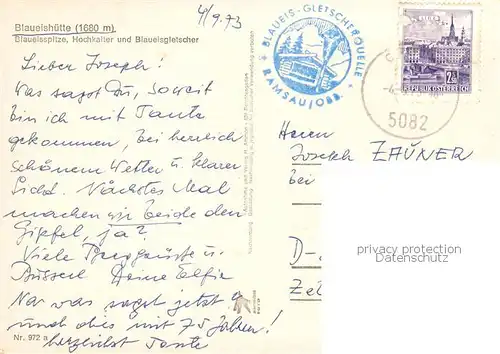 Blaueishütte (1680 m)
Blaueisspitze, Hochkalter und Blaueisgletscher
4/9.73
BLAUEIS-GLETSCHERQUELLE
RAMSAU/OBB.
2.-S
REPUBLIK ÖSTERREICH
5082
Lieber Joseph!
Was sagst du, soweit
bin ich mit Tante
gekommen, bei herrlich
schönem Wetter u. klarer
Sicht. Nächstes Mal
machen wir beide den
Gipfel, ja?
Viele Berggrüße u.
Busserl Deine Elfie
Na was sagst jetzt
und dies mit 75 Jahren!
herzlichst Tante
Nr. 972 a
Herrn
Joseph ZAUNER
bei
D-
Zel
privacy protection
Datenschutz